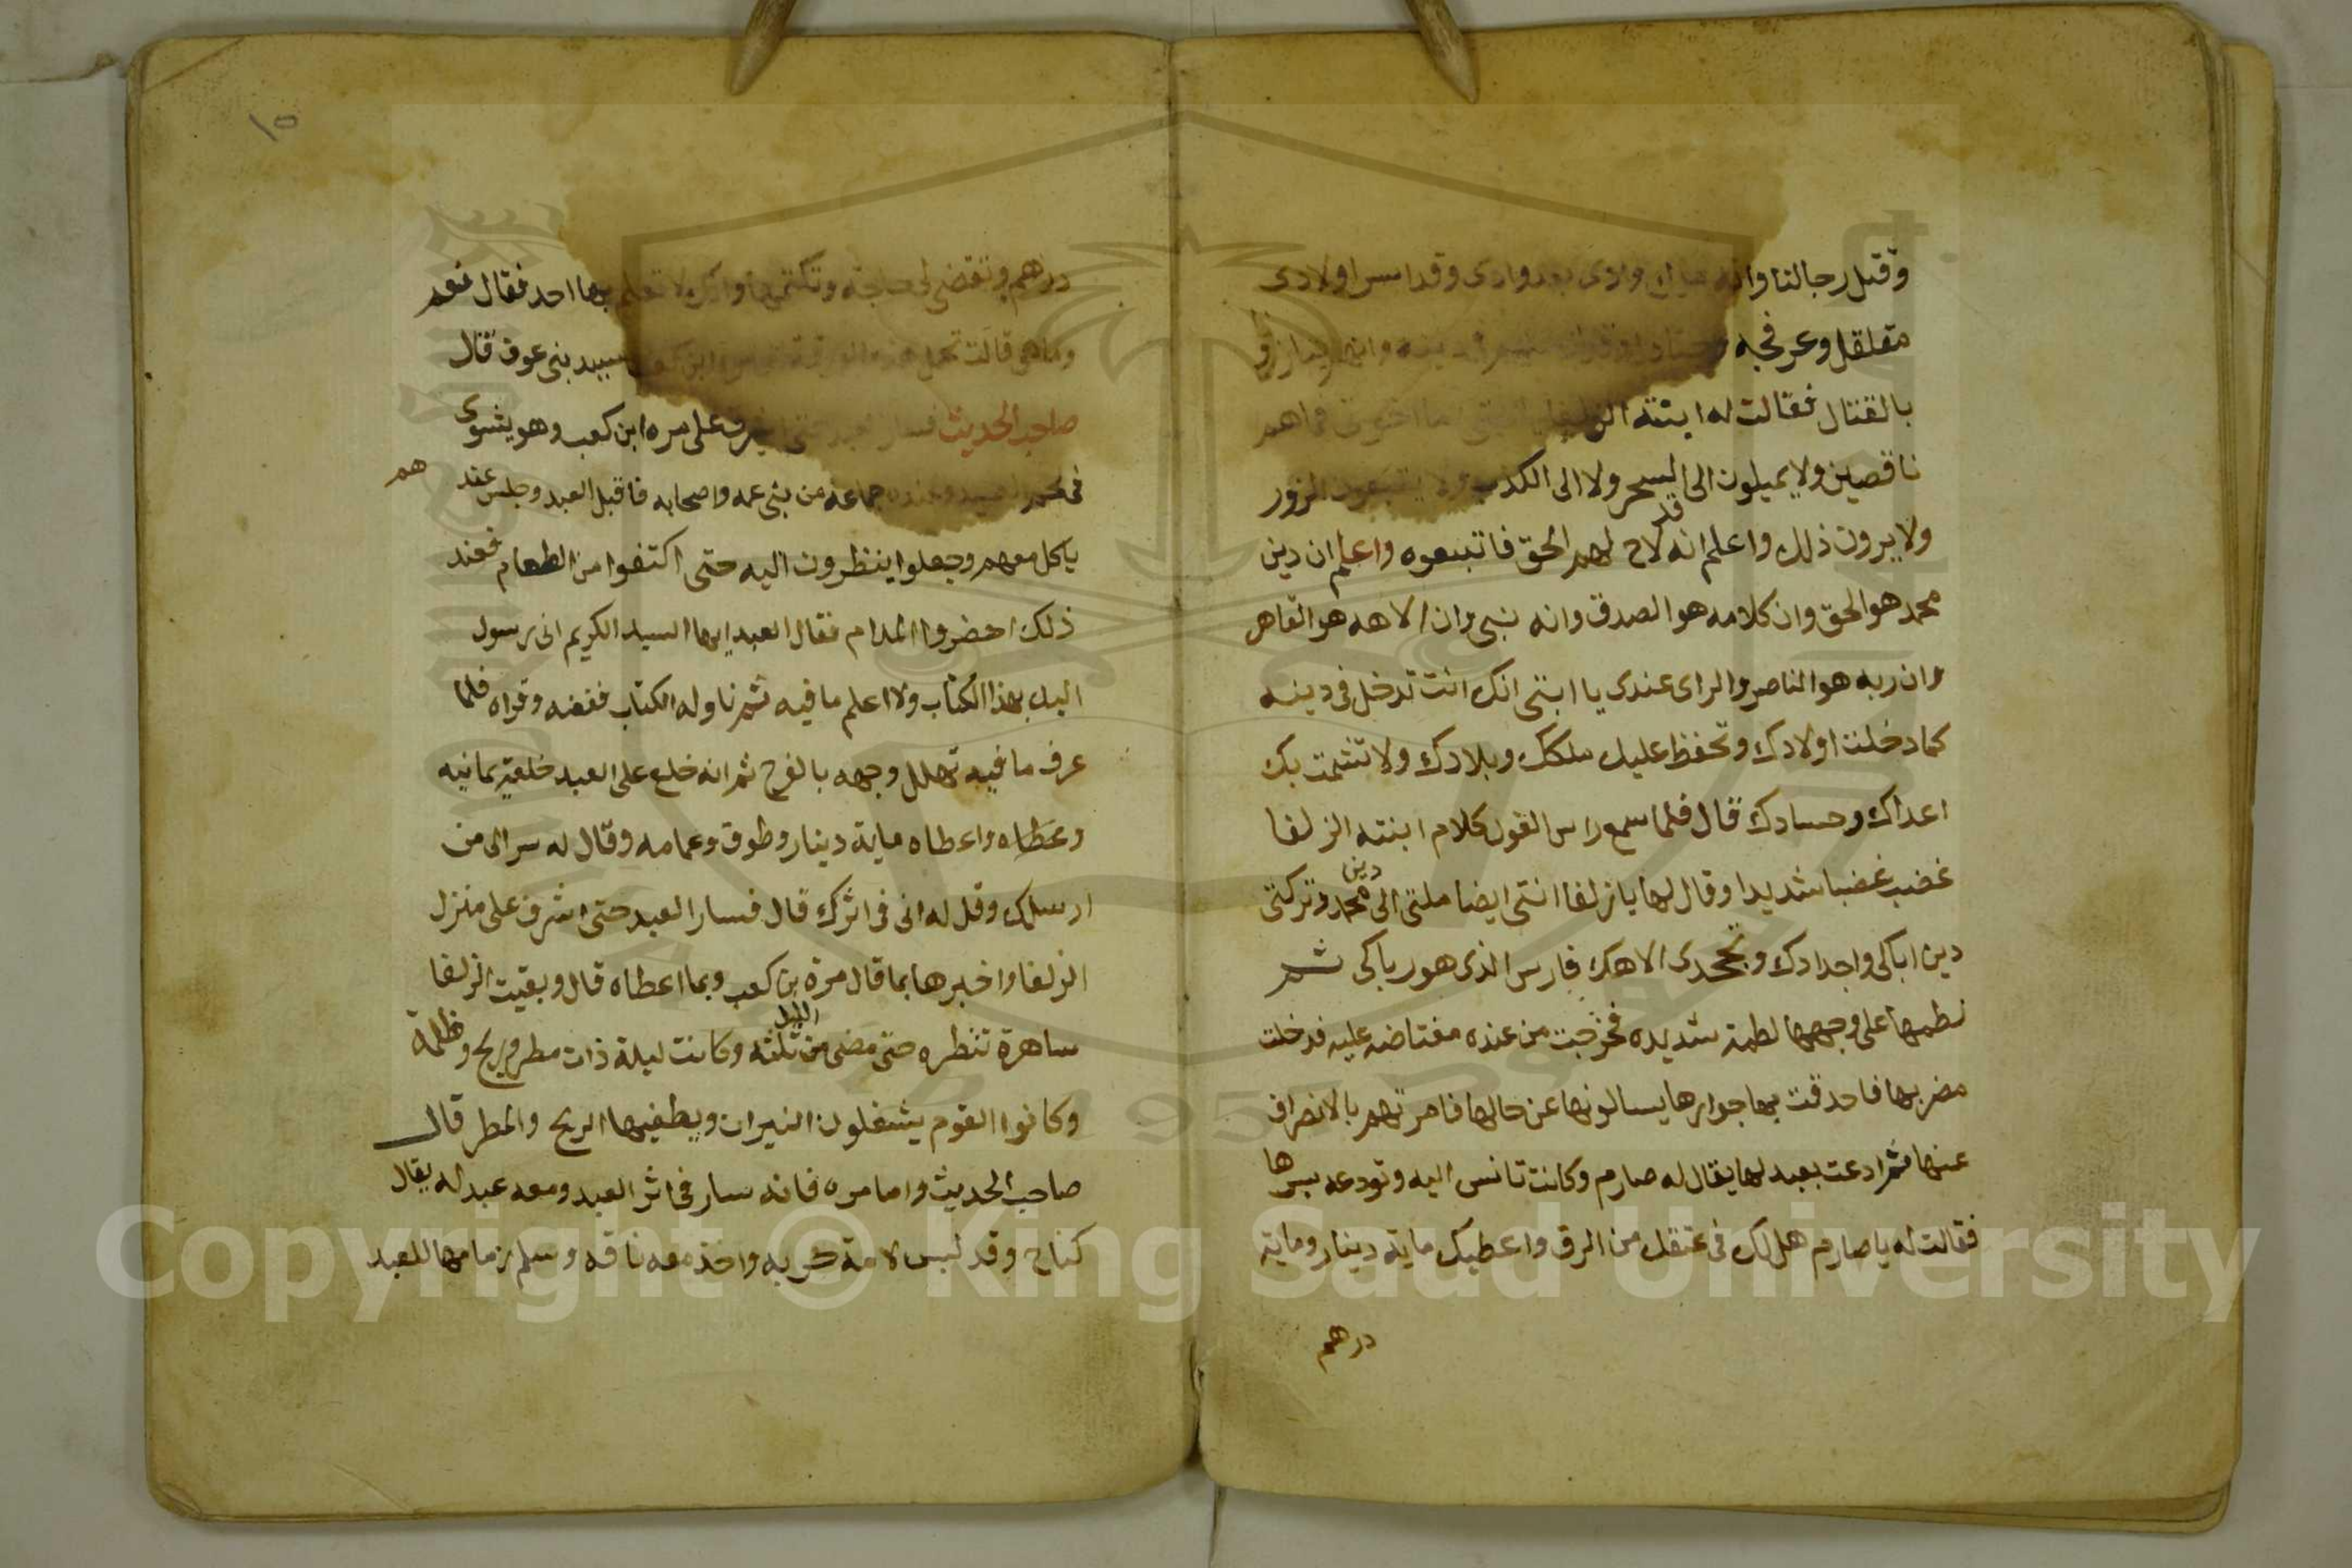 وقتل رجالنا وانه وادى بعد وادى وقد اسر اولادى
مقلقل وعرفجه
بالقتال فقالت له ابنته الزلفا يا ابتى اما اخوتى فماهم
ناقصين ولا يميلون الى السحر ولا الى الكذب ولا يتبعون الزور
ولا يرون ذلك واعلم انه قد لاح لهم الحق فاتبعوه واعلم ان دين
محمد هو الحق وان كلامه هو الصدق وانه نبى وان الاهه هو القاهر
وان ربه هو الناصر والراى عندى يا ابتى انك انت تدخل فى دينه
كما دخلت اولادك وتحفظ عليك ملكك وبلادك ولا تشمت بك
اعداك وحسادك قال فلما سمع راس الغول كلام ابنته الزلفا
غضب غضبا شديدا وقال لها يا زلفا انتى ايضا ملتى الى دين محمد وتركتى
دين اباكى واجدادك وتجحدى الاهك فارس الذى هو رباكى ثم
لطمها على وجهها لطمة شديده فخرجت من عنده مغتاضه عليه فدخلت
مضربها فاحدقت بها جوارها يسالونها عن حالها فامرتهم بالانصراف
عنها ثم ادعت بعبد لها يقال له صارم وكانت تانس اليه وتودعه بسرها
فقالت له يا صارم هل لك فى عتقك من الرق واعطيك ماية دينار وماية
درهم
١٥
درهم وتقضى لى حاجة وتكتمها ولا تعلم بها احد فقال نعم
وما هى قالت تحمل هذه الورقة مرة ابن كعب سيد بنى عوف قال
صاحب الحديث فسار العبد حتى اشرف على مره ابن كعب وهو يشوى
فى لحم الصيد وعنده جماعة من بنى عمه واصحابه فاقبل العبد وجلس عندهم
ياكل معهم وجعلوا ينظرون اليه حتى اكتفوا من الطعام فعند
ذلك احضروا المدام فقال العبد ايها السيد الكريم انى رسول
اليك بهذا الكتاب ولا اعلم ما فيه ثم ناوله الكتاب ففضه وقراه فلما
عرف ما فيه تهلل وجهه بالفرح ثم انه خلع على العبد خلعة يمانيه
وعطاه واعطاه ماية دينار وطوق وعمامه وقال له سر الى من
ارسلك وقل له انى فى اثرك قال فسار العبد حتى اشرف على منزل
الزلفا واخبرها بما قال مرة بن كعب وبما اعطاه قال وبقيت الزلفا
ساهرة تنظره حتى مضى من الليل ثلثه وكانت ليلة ذات مطر وريح وظلمة
وكانوا القوم يشعلون النيران ويطفيها الريح والمطر قال
صاحب الحديث واما مره فانه سار فى اثر العبد ومعه عبد له يقال
كناح وقد لبس لامة حربه واخذ معه ناقه وسلم زمامها للعبد
Copyright © King Saud University